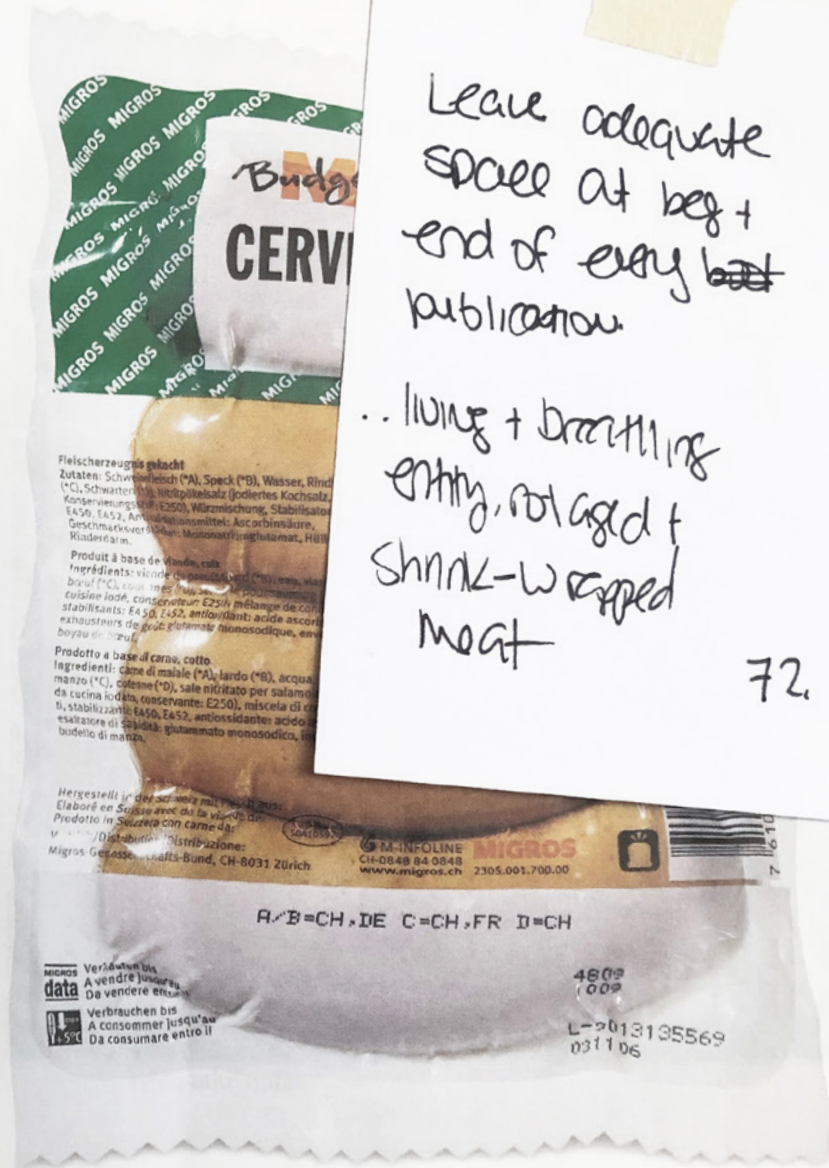 MIGROS MIGROS MIGROS MIGROS
Budg
M
CERV
Leave adequate
space at beg +
end of every
publication.
.. living + breathing
entity, not aged +
shrink-wrapped
meat
72.
Fleischerzeugnis gekocht
Zutaten: Schweinefleisch (*A), Speck (*B), Wasser, Rind
(*C), Schwarten (*D), Nitritpökelsalz (jodiertes Kochsalz,
E250), Würzmischung, Stabilisato
E450, E452, Ascorbinsäure,
Mononatriumglutamat, Hüll
Rinderdarm.
Produit à base de viande, cuit
Ingrédients: viande de
bœuf (*C),
cuisine iodé, conservateur: E250), mélange de con
stabilisants: E450, E452, antioxydant: acide ascorb
exhausteurs de goût: glutamate monosodique, env
boyau de bœuf.
Prodotto a base di carne, cotto
Ingredienti: carne di maiale (*A), lardo (*B), acqua,
manzo (*C), cotenne (*D), sale nitritato per salamo
da cucina iodato, conservante: E250), miscela di
ti, stabilizzanti: E450, E452, antiossidante: acido
esaltatore di sapidità: glutammato monosodico, in
budello di manzo.
Hergestellt in der Schweiz mit Fleisch aus:
Elaboré en Suisse avec de la viande de:
Prodotto in Svizzera con carne da:
/Distribution/Distribuzione:
Migros-Genossenschafts-Bund, CH-8031 Zürich
M-INFOLINE
CH-0848 84 0848
www.migros.ch
MIGROS
2305.001.700.00
7 610
A/B=CH,DE C=CH,FR D=CH
MIGROS data
Verkaufen bis
A vendre jusqu'au
Da vendere entro
+5°C
Verbrauchen bis
A consommer jusqu'au
Da consumare entro il
4809
009
L-9013135569
031106